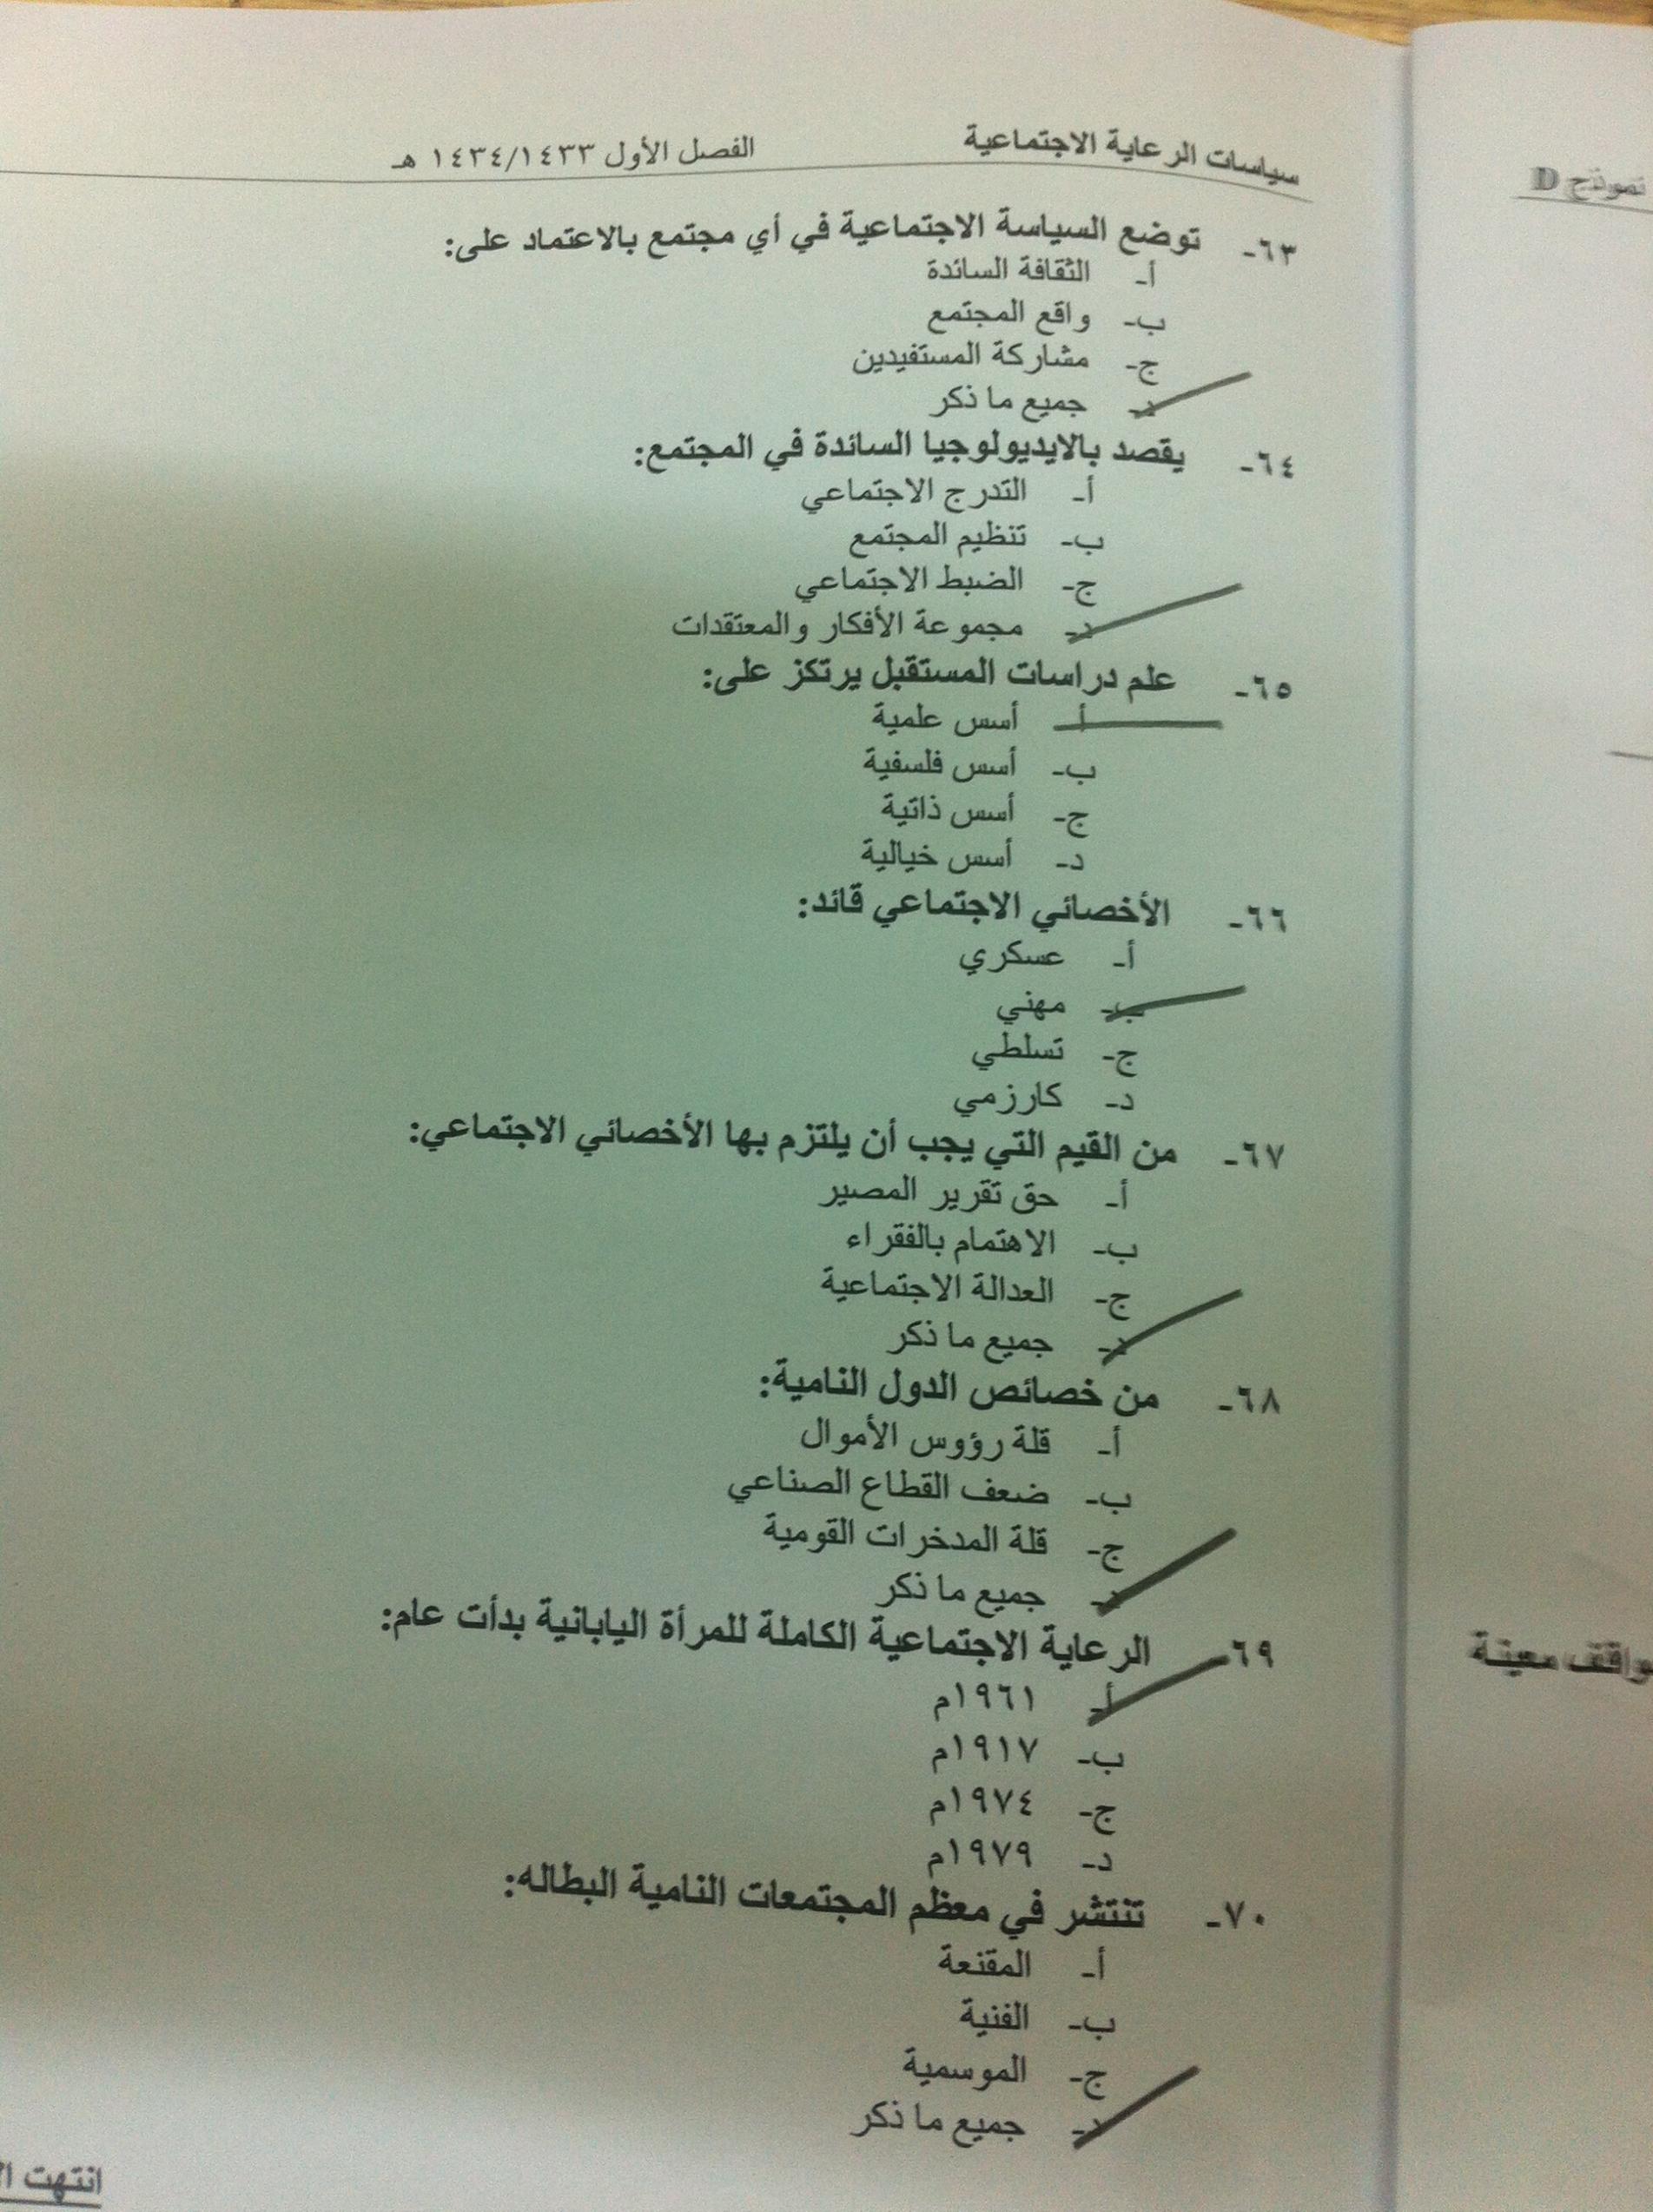 سياسات الرعاية الاجتماعية الفصل الأول ١٤٣٤/١٤٣٣ هـ
نموذج D
٦٣- توضع السياسة الاجتماعية في أي مجتمع بالاعتماد على:
أ- الثقافة السائدة
ب- واقع المجتمع
ج- مشاركة المستفيدين
د- جميع ما ذكر
٦٤- يقصد بالايديولوجيا السائدة في المجتمع:
أ- التدرج الاجتماعي
ب- تنظيم المجتمع
ج- الضبط الاجتماعي
د- مجموعة الأفكار والمعتقدات
٦٥- علم دراسات المستقبل يرتكز على:
أ- أسس علمية
ب- أسس فلسفية
ج- أسس ذاتية
د- أسس خيالية
٦٦- الأخصائي الاجتماعي قائد:
أ- عسكري
ب- مهني
ج- تسلطي
د- كارزمي
٦٧- من القيم التي يجب أن يلتزم بها الأخصائي الاجتماعي:
أ- حق تقرير المصير
ب- الاهتمام بالفقراء
ج- العدالة الاجتماعية
د- جميع ما ذكر
٦٨- من خصائص الدول النامية:
أ- قلة رؤوس الأموال
ب- ضعف القطاع الصناعي
ج- قلة المدخرات القومية
د- جميع ما ذكر
٦٩- الرعاية الاجتماعية الكاملة للمرأة اليابانية بدأت عام:
أ- ١٩٦١م
ب- ١٩١٧م
ج- ١٩٧٤م
د- ١٩٧٩م
٧٠- تنتشر في معظم المجتمعات النامية البطاله:
أ- المقنعة
ب- الفنية
ج- الموسمية
د- جميع ما ذكر
انتهت
معينة